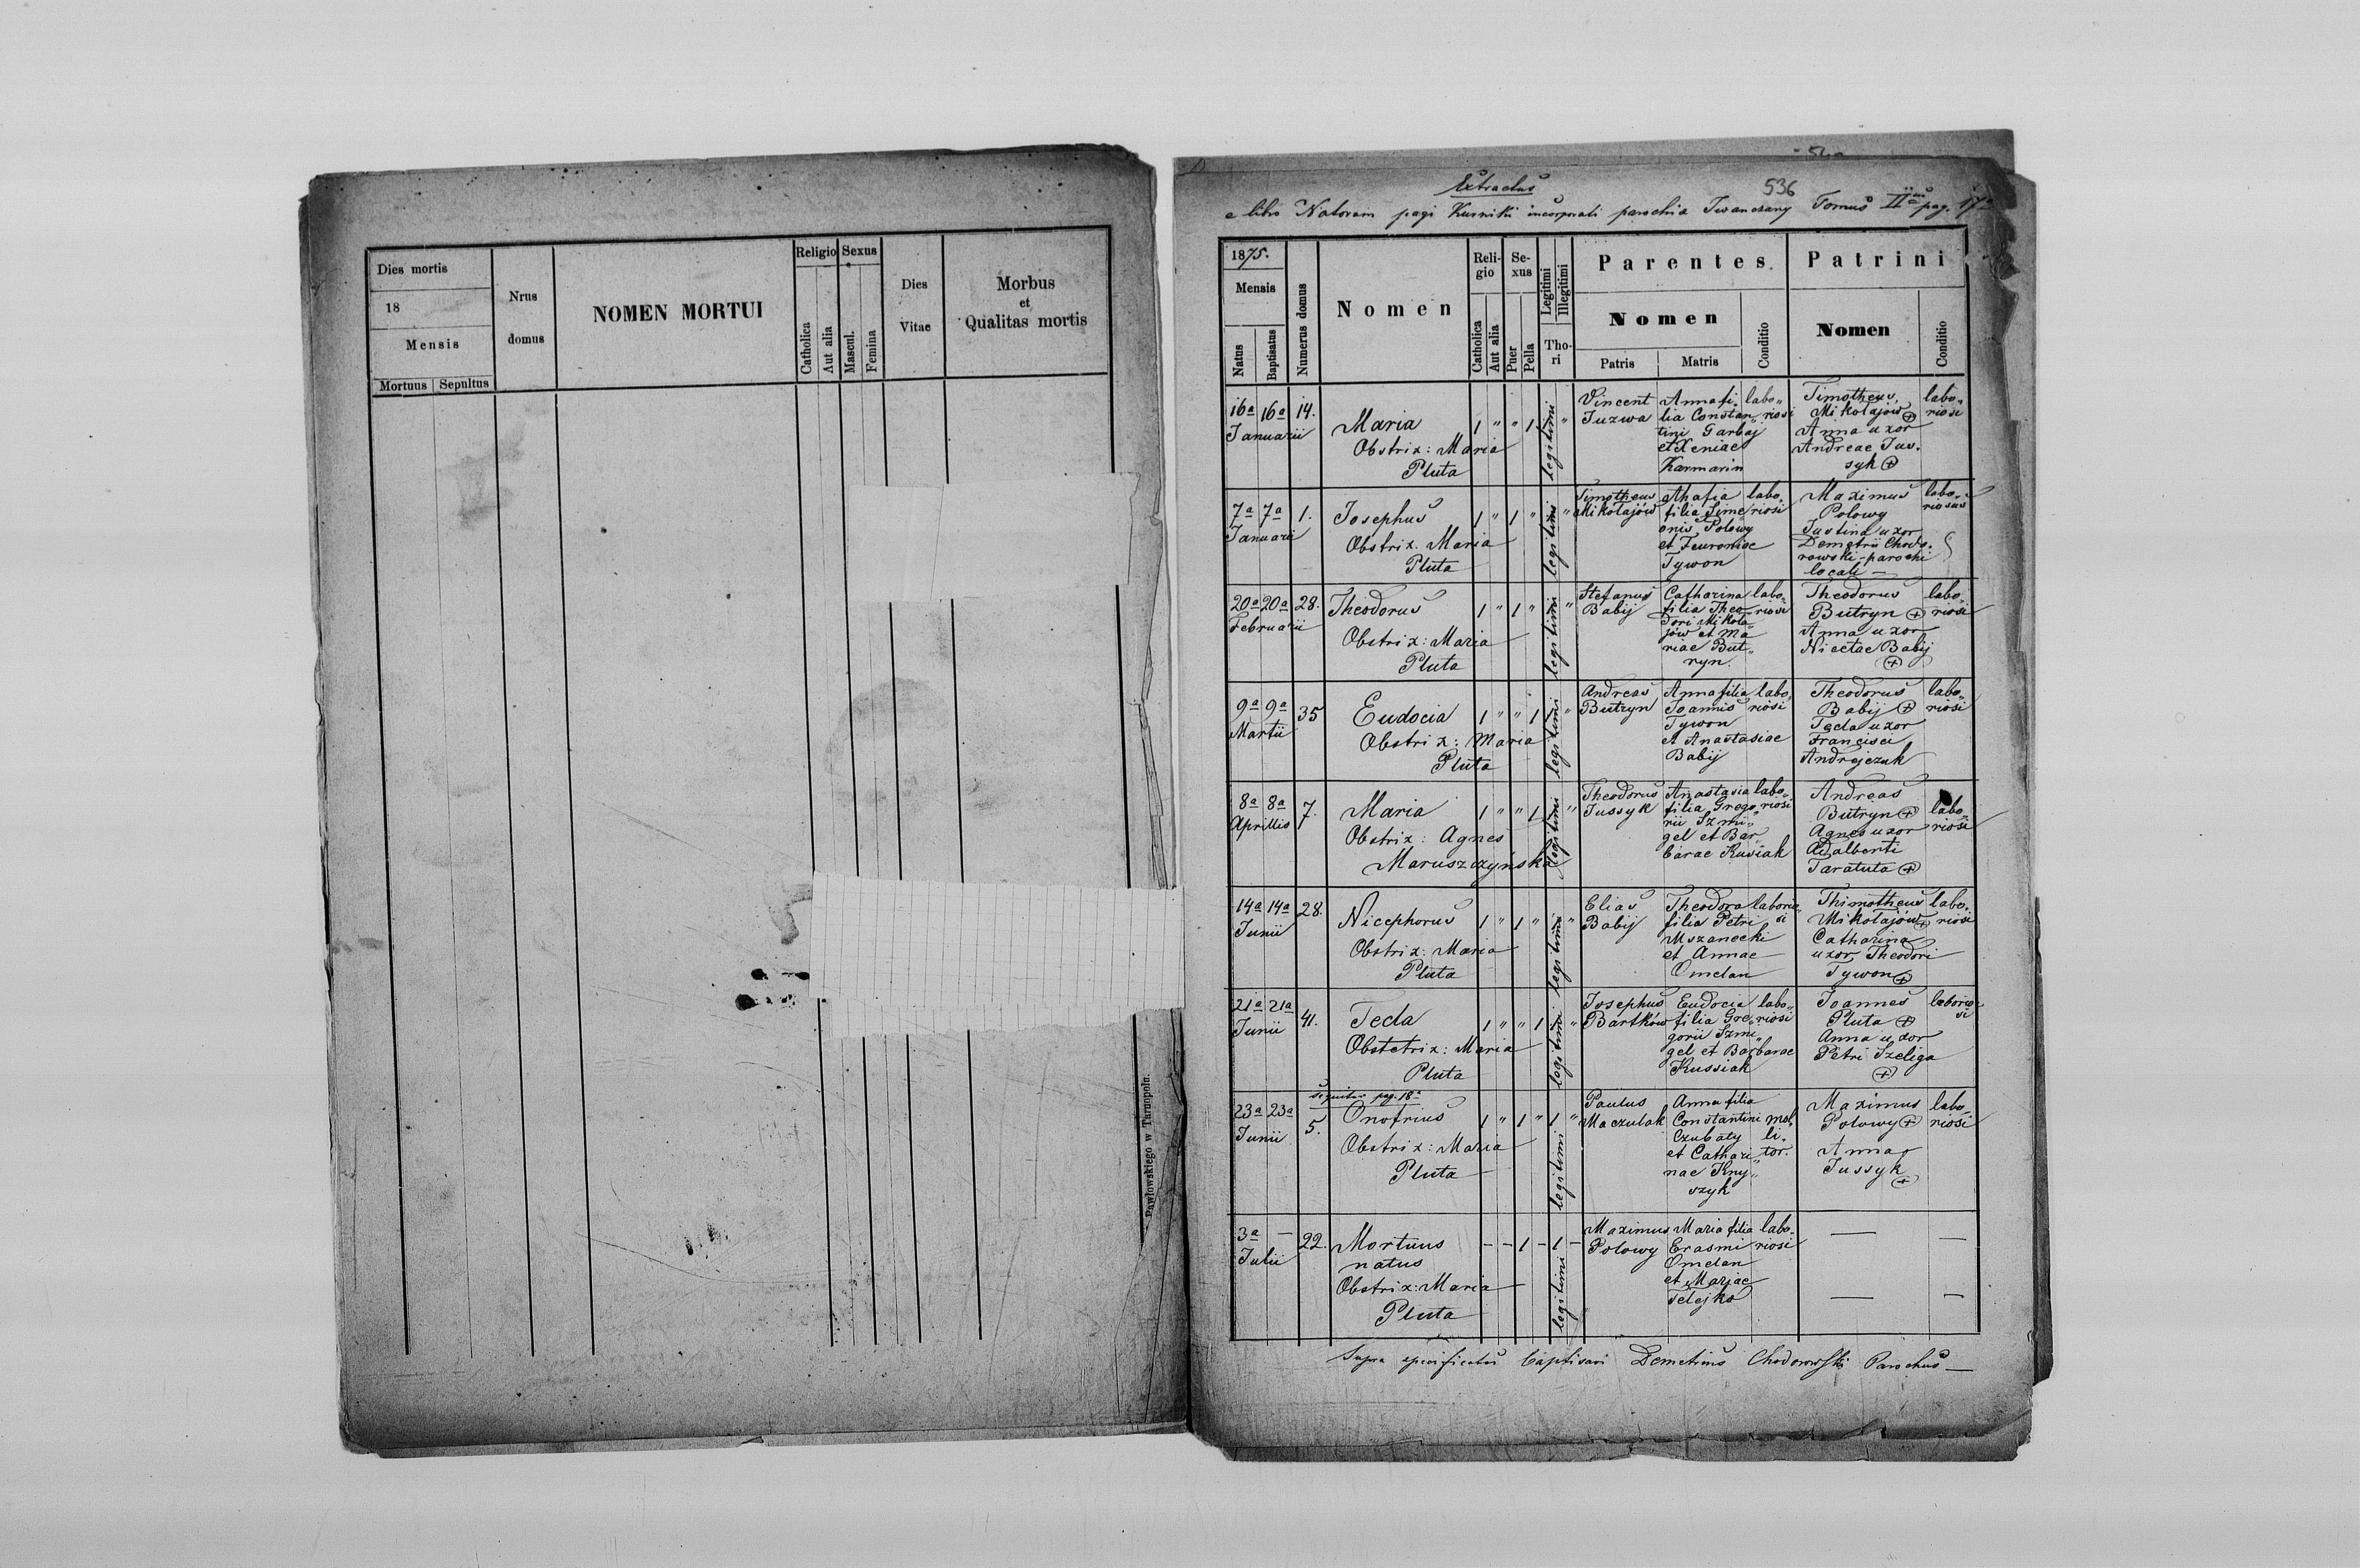 Dies mortis
18
Mensis
Mortuus Sepultus
Nrus
domus
NOMEN MORTUI
Religio Sexus
Catholica
Aut alia
Mascul.
Femina
Dies
Vitae
Morbus
et
Qualitas mortis
Pawłowskiego w Tarnopolu.
536
Extractus
e libro Natorum pagi Kurniki incorporati parochia Iwanczany Tomus II pag. 17
1875.
Mensis
Natus
Baptisatus
Numerus domus
Nomen
Reli-
gio
Catholica
Aut alia
Se-
xus
Puer
Pella
Legitimi
Illegitimi
Tho-
ri
Parentes
Nomen
Patris
Matris
Conditio
Patrini
Nomen
Conditio
16a 16a 14.
Januarii
Maria
Obstrix: Maria
Pluta
1 " " 1
legitimi "
Vincent
Juzwa
Anna fi„
lia Constan„
tini Garbaj
et Xeniae
Karmarin
labo„
riosi
Timotheus
Mikołajów +
Anna uxor
Andreae Jus„
syk +
labo„
riosi
7a 7a 1.
Januarii
Josephus
Obstrix. Maria
Pluta
1 " 1 "
legitimi "
Timotheus
Mikołajów
Ahafia
filia Sime
onis Polowy
et Feuroniae
Tywon
labo„
riosi
Maximus
Polowy
Justina uxor
Demetrii Chodo„
rowski - parochi
locali —
labo„
riosus
20a 20a 28.
Februarii
Theodorus
Obstrix: Maria
Pluta
1 " 1 "
legitimi "
Stefanus
Babij
Catharina
filia Theo„
dori Mikoła„
jów et Ma„
riae But„
ryn.
labo„
riosi
Theodorus
Butryn +
Anna uxor
Nicetae Babij
+
labo„
riosi
9a 9a 35
Martii
Eudocia
Obstrix: Maria
Pluta
1 " " 1
legitimi "
Andreas
Butryn
Anna filia
Joannis
Tywon
et Anastasiae
Babij
labo„
riosi
Theodorus
Babij +
Tecla uxor
Francisci
Andrejczuk
labo„
riosi
8a 8a 7.
Aprillis
Maria
Obstrix: Agnes
Maruszczyńska
1 " " 1
legitimi "
Theodorus
Jussyk
Anastasia
filia Grego„
rii Szmi„
gel et Bar
barae Kusiak
labo„
riosi
Andreas
Butryn +
Agnes uxor
Adalberti
Taratuta +
labo„
riosi
14a 14a 28.
Junii
Nicephorus
Obstrix: Maria
Pluta
1 " 1 "
legitimi "
Elias
Babij
Theodora
filia Petri
Mszanecki
et Annae
Omelan
laborio„
si
Thimotheus
Mikołajów +
Catharina
uxor Theodori
Tywon +
labo„
riosi
21a 21a 41.
Junii
Tecla
Obstetrix: Maria
Pluta
1 " " 1
legitimi "
Josephus
Bartków
Eudocia
filia Gre„
gorii Szmi„
gel et Barbarae
Kussiak
labo„
riosi
Joannes
Pluta +
Anna uxor
Petri Szeliga
+
laborio„
si
sequitur pag. 18a
23a 23a 5.
Junii
Onofrius
Obstrix: Maria
Pluta
1 " 1 " 1 "
legitimi
Paulus
Maczulak
Anna filia
Constantini
Czubaty
et Cathari„
nae Kny„
szyk
mol„
li„
tor.
Maximus
Polowy +
Anna
Jussyk
+
labo„
riosi
3a — 22.
Julii
Mortuus
natus
Obstrix: Maria
Pluta
- - 1 - 1 -
legitimi
Maximus
Polowy
Maria filia
Erasmi
Omelan
et Mariae
Telejko
labo„
riosi
Supra specificatos baptisavi Demetrius Chodorowski Parochus —